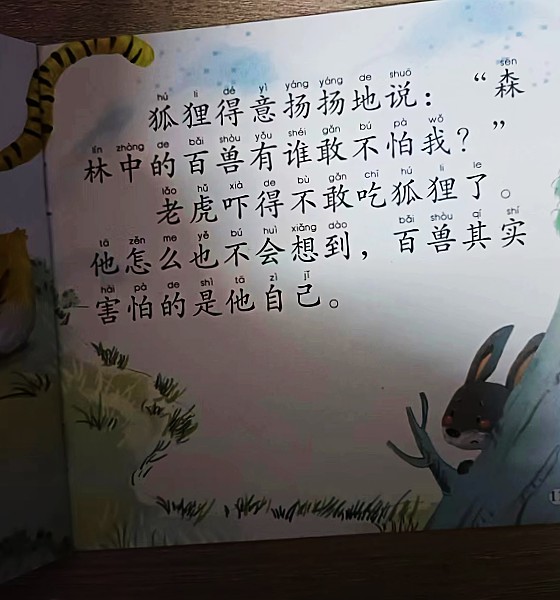 hú li dé yì yáng yáng de shuō sēn
狐狸得意扬扬地说：“森
lín zhōng de bǎi shòu yǒu shéi gǎn bú pà wǒ
林中的百兽有谁敢不怕我？”
lǎo hǔ xià de bù gǎn chī hú li le
老虎吓得不敢吃狐狸了。
tā zěn me yě bú huì xiǎng dào bǎi shòu qí shí
他怎么也不会想到，百兽其实
hài pà de shì tā zì jǐ
害怕的是他自己。